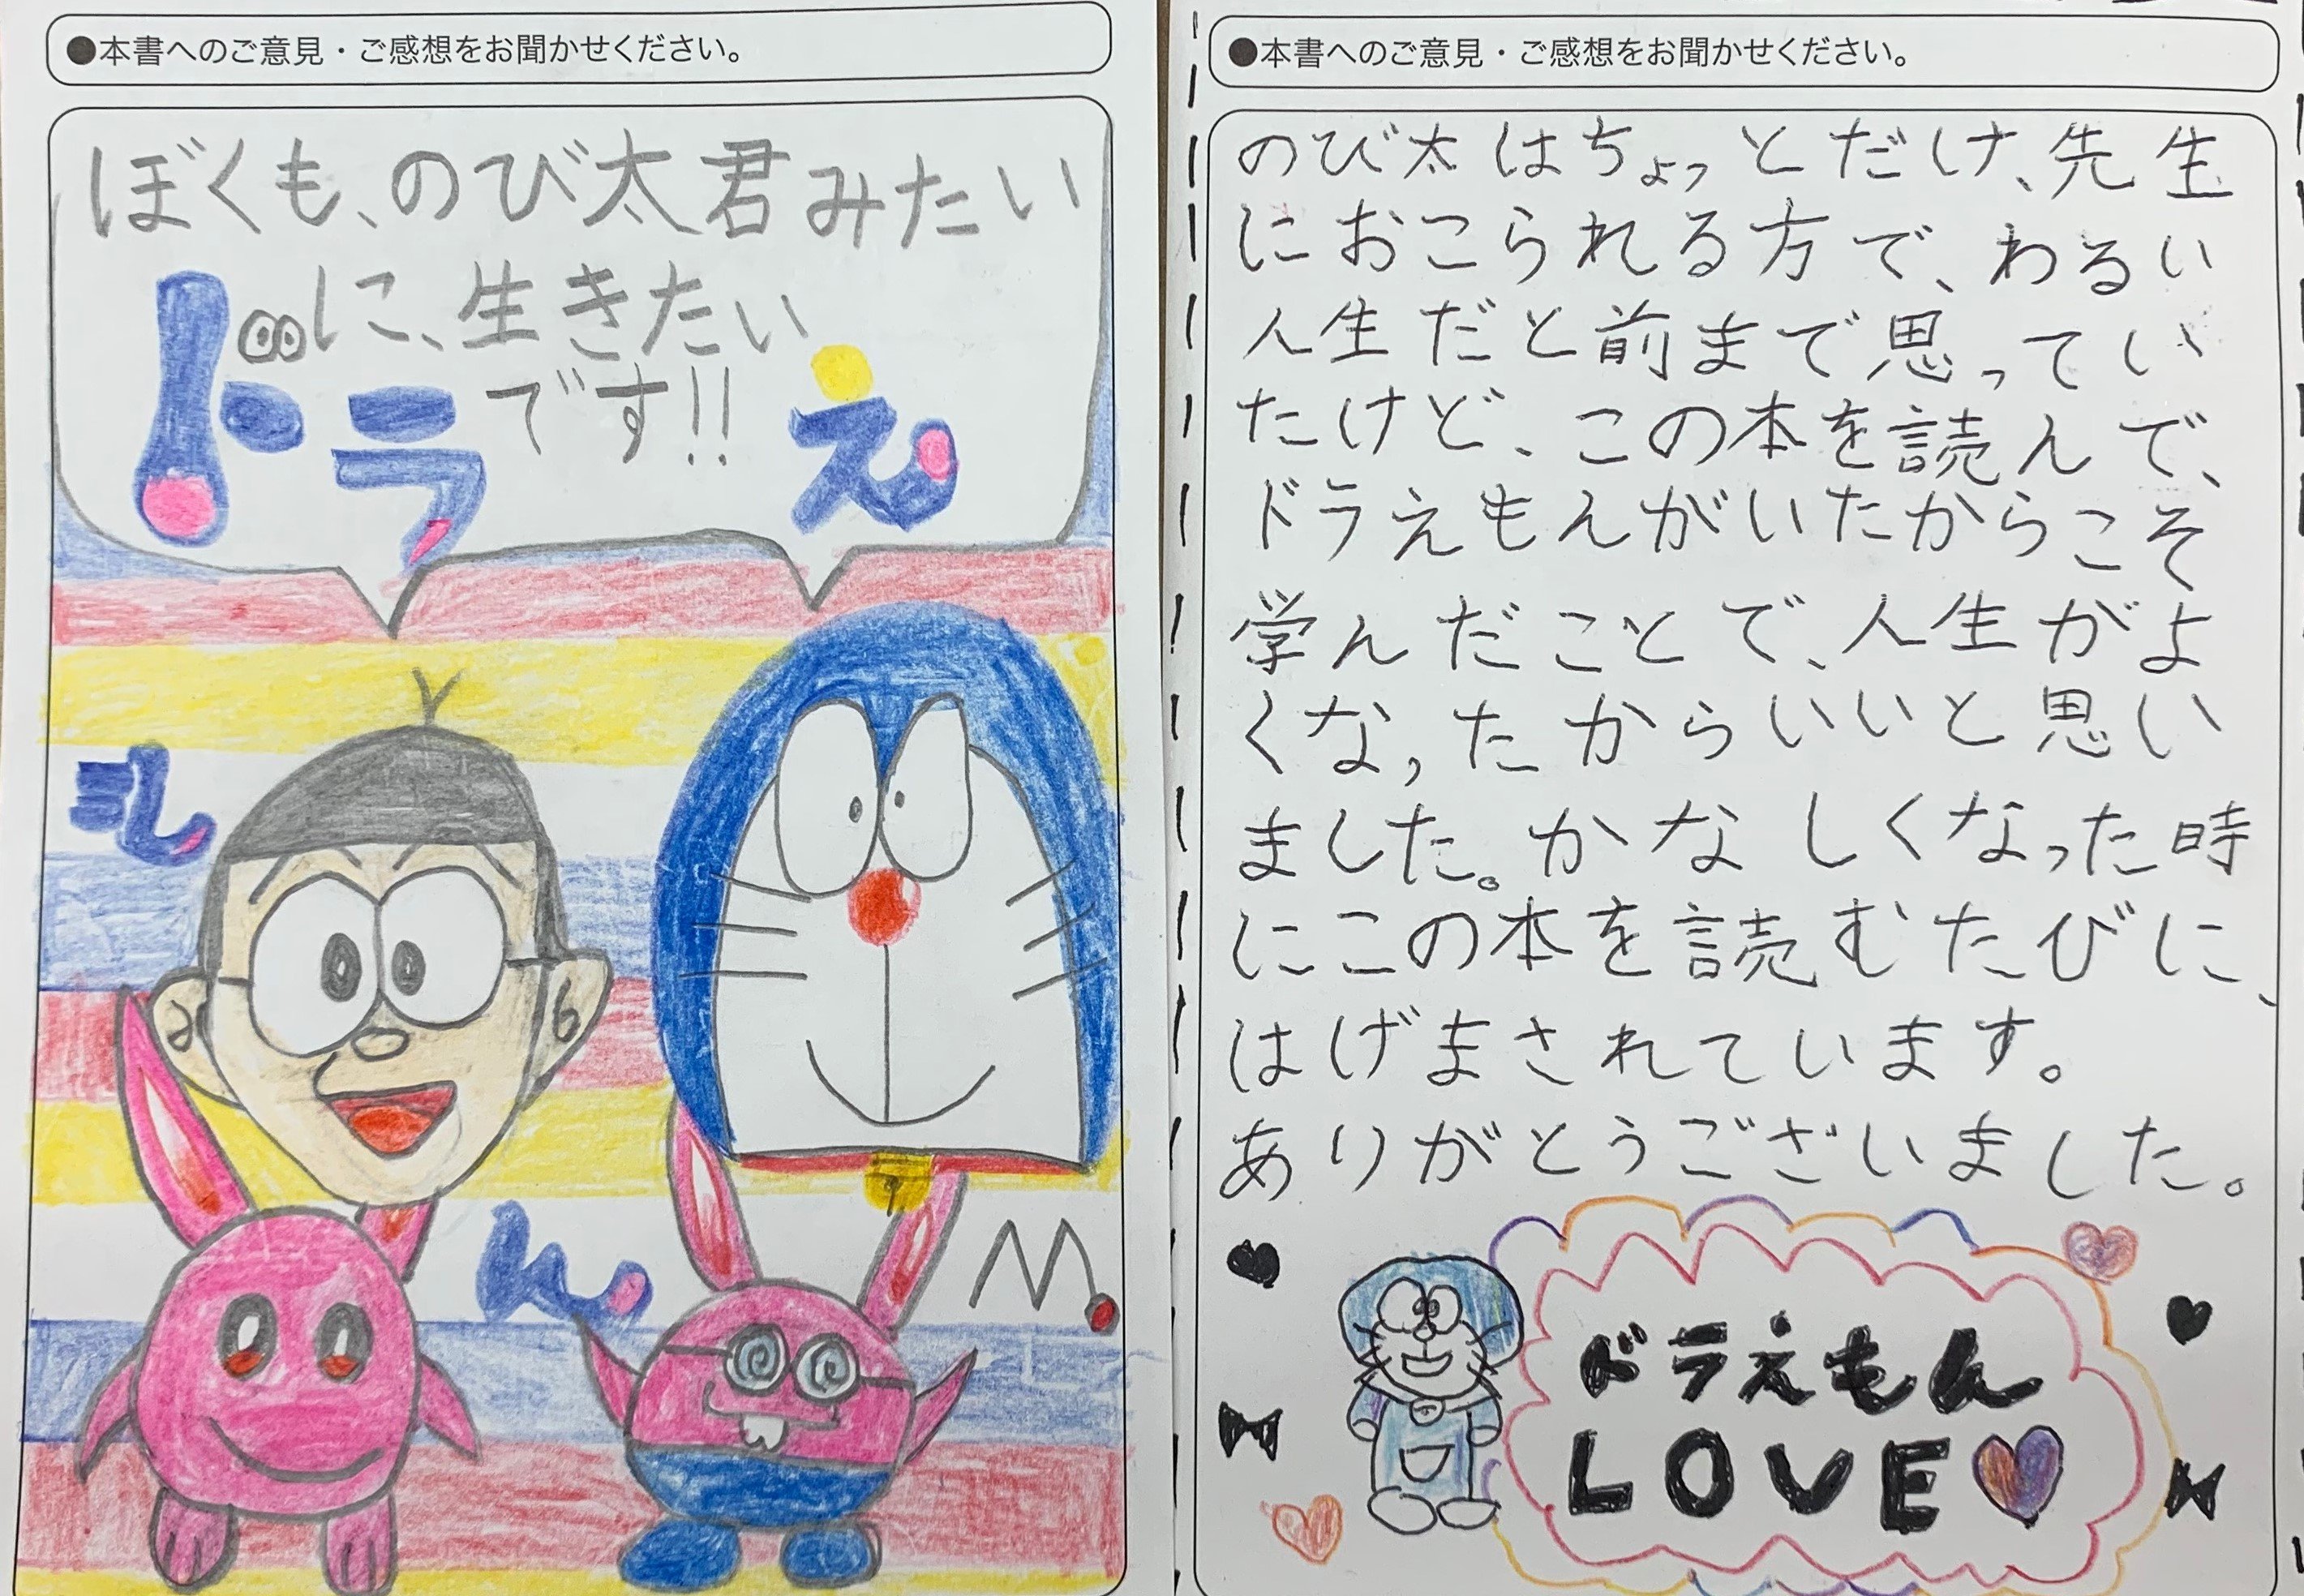 ●本書へのご意見・ご感想をお聞かせください。
ぼくも、のび太君みたい
に、生きたい
です!!
ドラえもん
●本書へのご意見・ご感想をお聞かせください。
のび太はちょっとだけ、先生
におこられる方で、わるい
人生だと前まで思ってい
たけど、この本を読んで、
ドラえもんがいたからこそ
学んだことで、人生がよ
くなったからいいと思い
ました。かなしくなった時
にこの本を読むたびに、
はげまされています。
ありがとうございました。
ドラえもん
LOVE